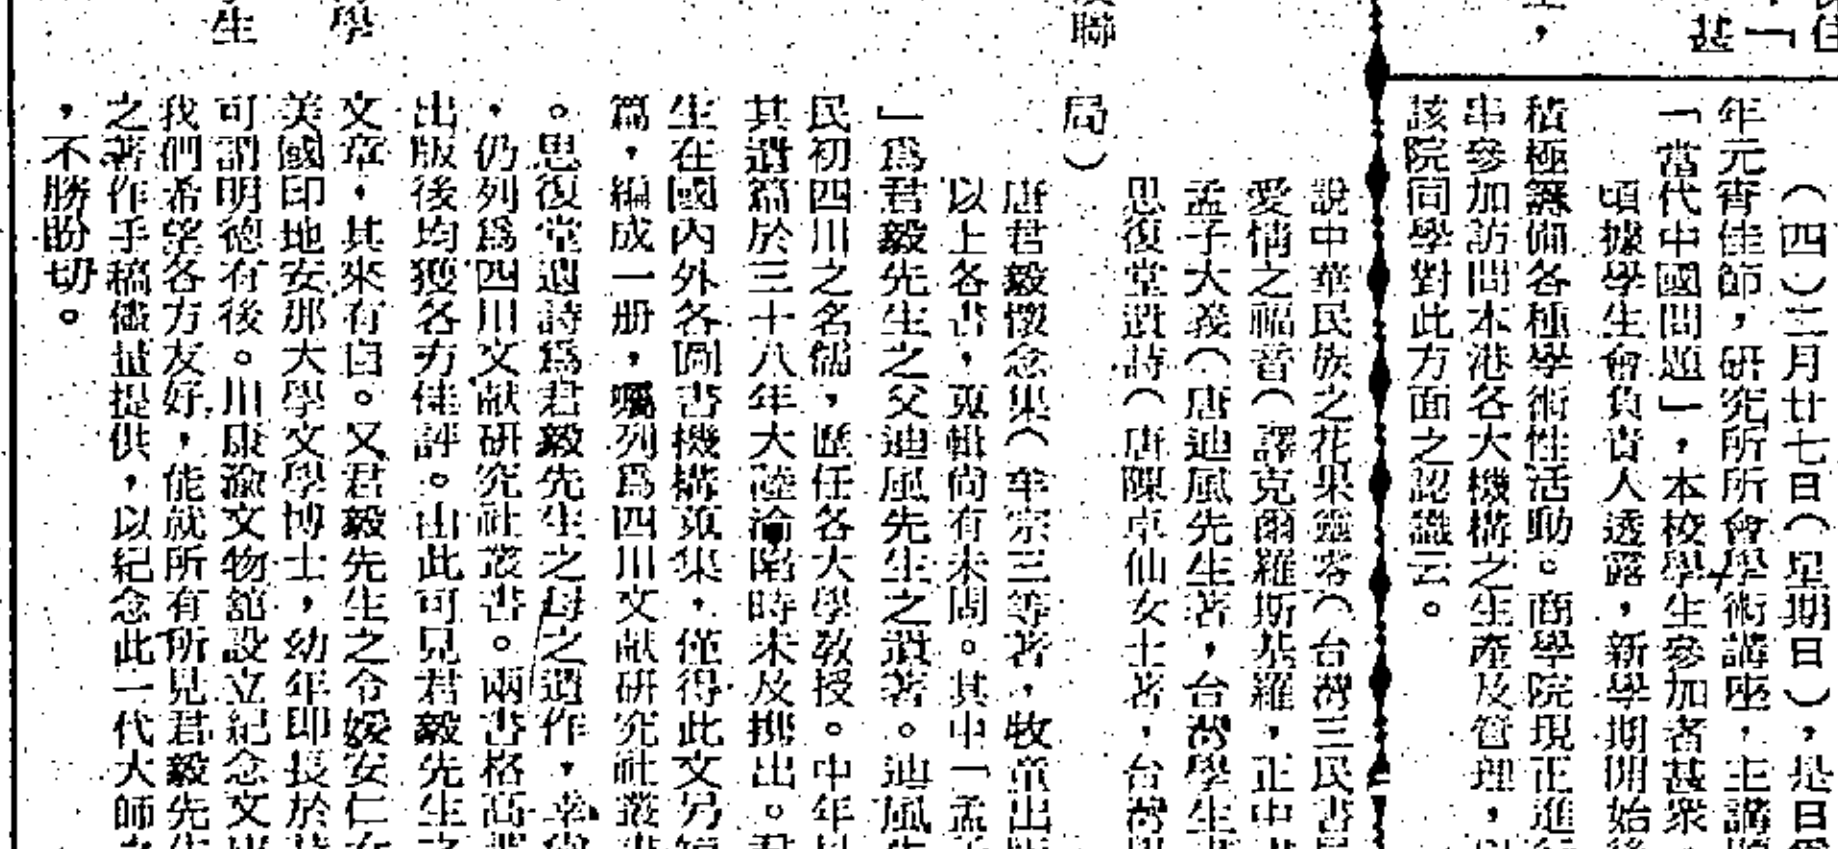 保住
、「
甚
（四）二月廿七日（星期日），是日為
年元宵佳節，研究所所會學術講座，主講題
「當代中國問題」，本校學生參加者甚衆，
頃據學生會負責人透露，新學期開始後
積極籌備各種學術性活動。商學院現正進行
串參加訪問本港各大機構之生產及管理，以
該院同學對此方面之認識云。
聯
學
生
說中華民族之花果靈零（台灣三民書局
愛情之福音（譯克爾羅斯基羅，正中書
孟子大義（唐迪風先生著，台灣學生書
思復堂遺詩（唐陳卓仙女士著，台灣學
局）
唐君毅懷念集（牟宗三等著，牧童出版
以上各書，蒐輯尚有未周。其中「孟子
」爲君毅先生之父迪風先生之遺著。迪風先
民初四川之名儒，歷任各大學敎授。中年以
其遺篇於三十八年大陸淪陷時未及携出。君
生在國內外各圖書機構蒐集，僅得此文另短
篇，編成一册，囑列爲四川文献硏究社叢書
。思復堂遺詩爲君毅先生之母之遺作，幸尙
，仍列爲四川文献研究社叢書。兩書格高
出版後均獲各方佳評。由此可見君毅先生之
文章，其來有自。又君毅先生之令嫒安仁女
美國印地安那大學文學博士，幼年即長於
可謂明德有後。川康渝文物館設立紀念文庫
我們希望各方友好，能就所有所見君毅先生
之著作手稿儘量提供，以紀念此一代大師之
，不勝盼切。